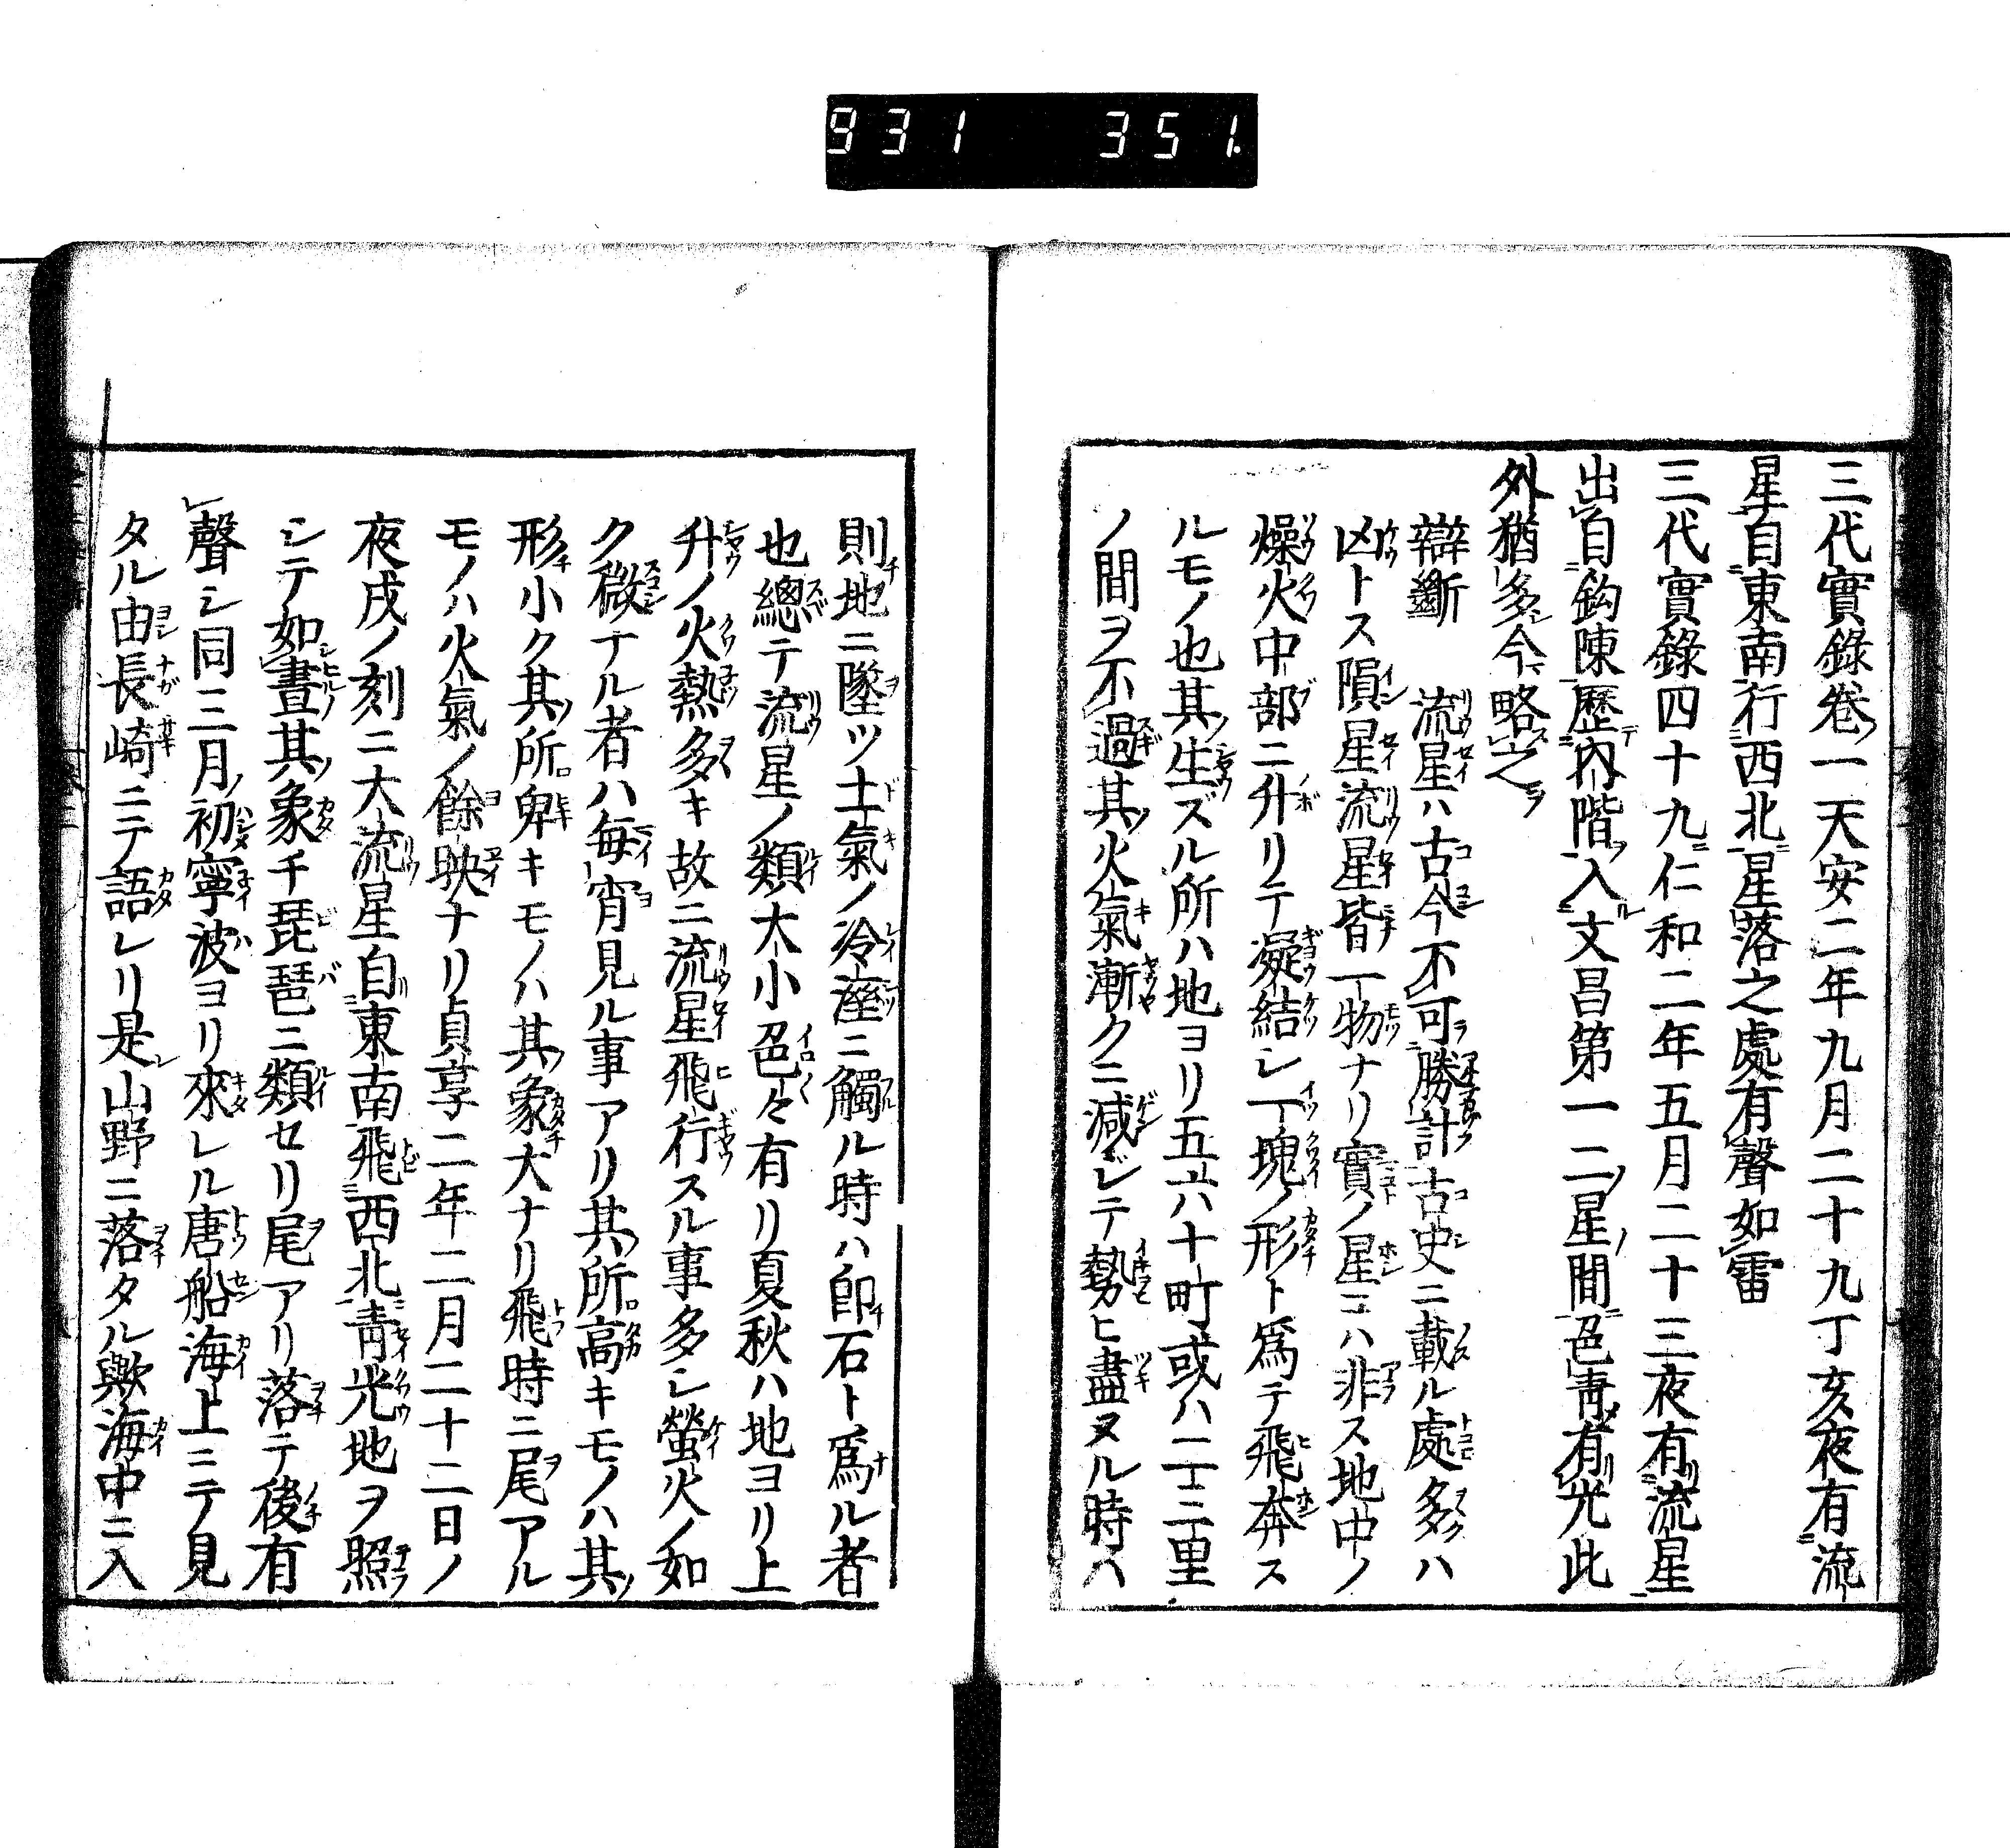 931 351.
三代實錄卷一天安二年九月二十九丁亥夜有流
星自東南行西北星落之處有聲如雷
三代實錄四十九仁和二年五月二十三夜有流星
出自鈎陳歷內階入文昌第一二星間色靑有光此
外猶多今略之
辯斷 流星ハ古今不可勝計古史ニ載ル處多クハ
凶トス隕星流星皆一物ナリ實ノ星ニハ非ス地中ノ
燥火中部ニ升リテ凝結シ一塊ノ形ト爲テ飛奔ス
ルモノ也其生ズル所ハ地ヨリ五六十町或ハ二三里
ノ間ヲ不過其火氣漸クニ減ジテ勢ヒ盡ヌル時ハ
則地ニ墜ツ土氣ノ冷溼ニ觸ル時ハ卽石ト爲ル者
也總テ流星ノ類大小色々有リ夏秋ハ地ヨリ上
升ノ火熱多キ故ニ流星飛行スル事多シ螢火ノ如
ク微ナル者ハ每宵見ル事アリ其所高キモノハ其
形小ク其所卑キモノハ其象大ナリ飛時ニ尾アル
モノハ火氣ノ餘映ナリ貞享二年二月二十二日ノ
夜戌ノ刻ニ大流星自東南飛西北靑光地ヲ照
シテ如晝其象チ琵琶ニ類セリ尾アリ落テ後有
聲シ同三月初寧波ヨリ來レル唐船海上ニテ見
タル由長崎ニテ語レリ是山野ニ落タル歟海中ニ入